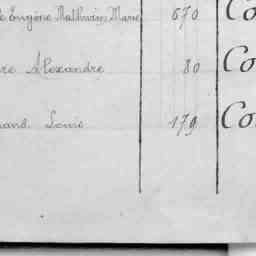 Eugène Mathurin Marie 670 Co
re Alexandre 80 Co
and Louis 179 Co